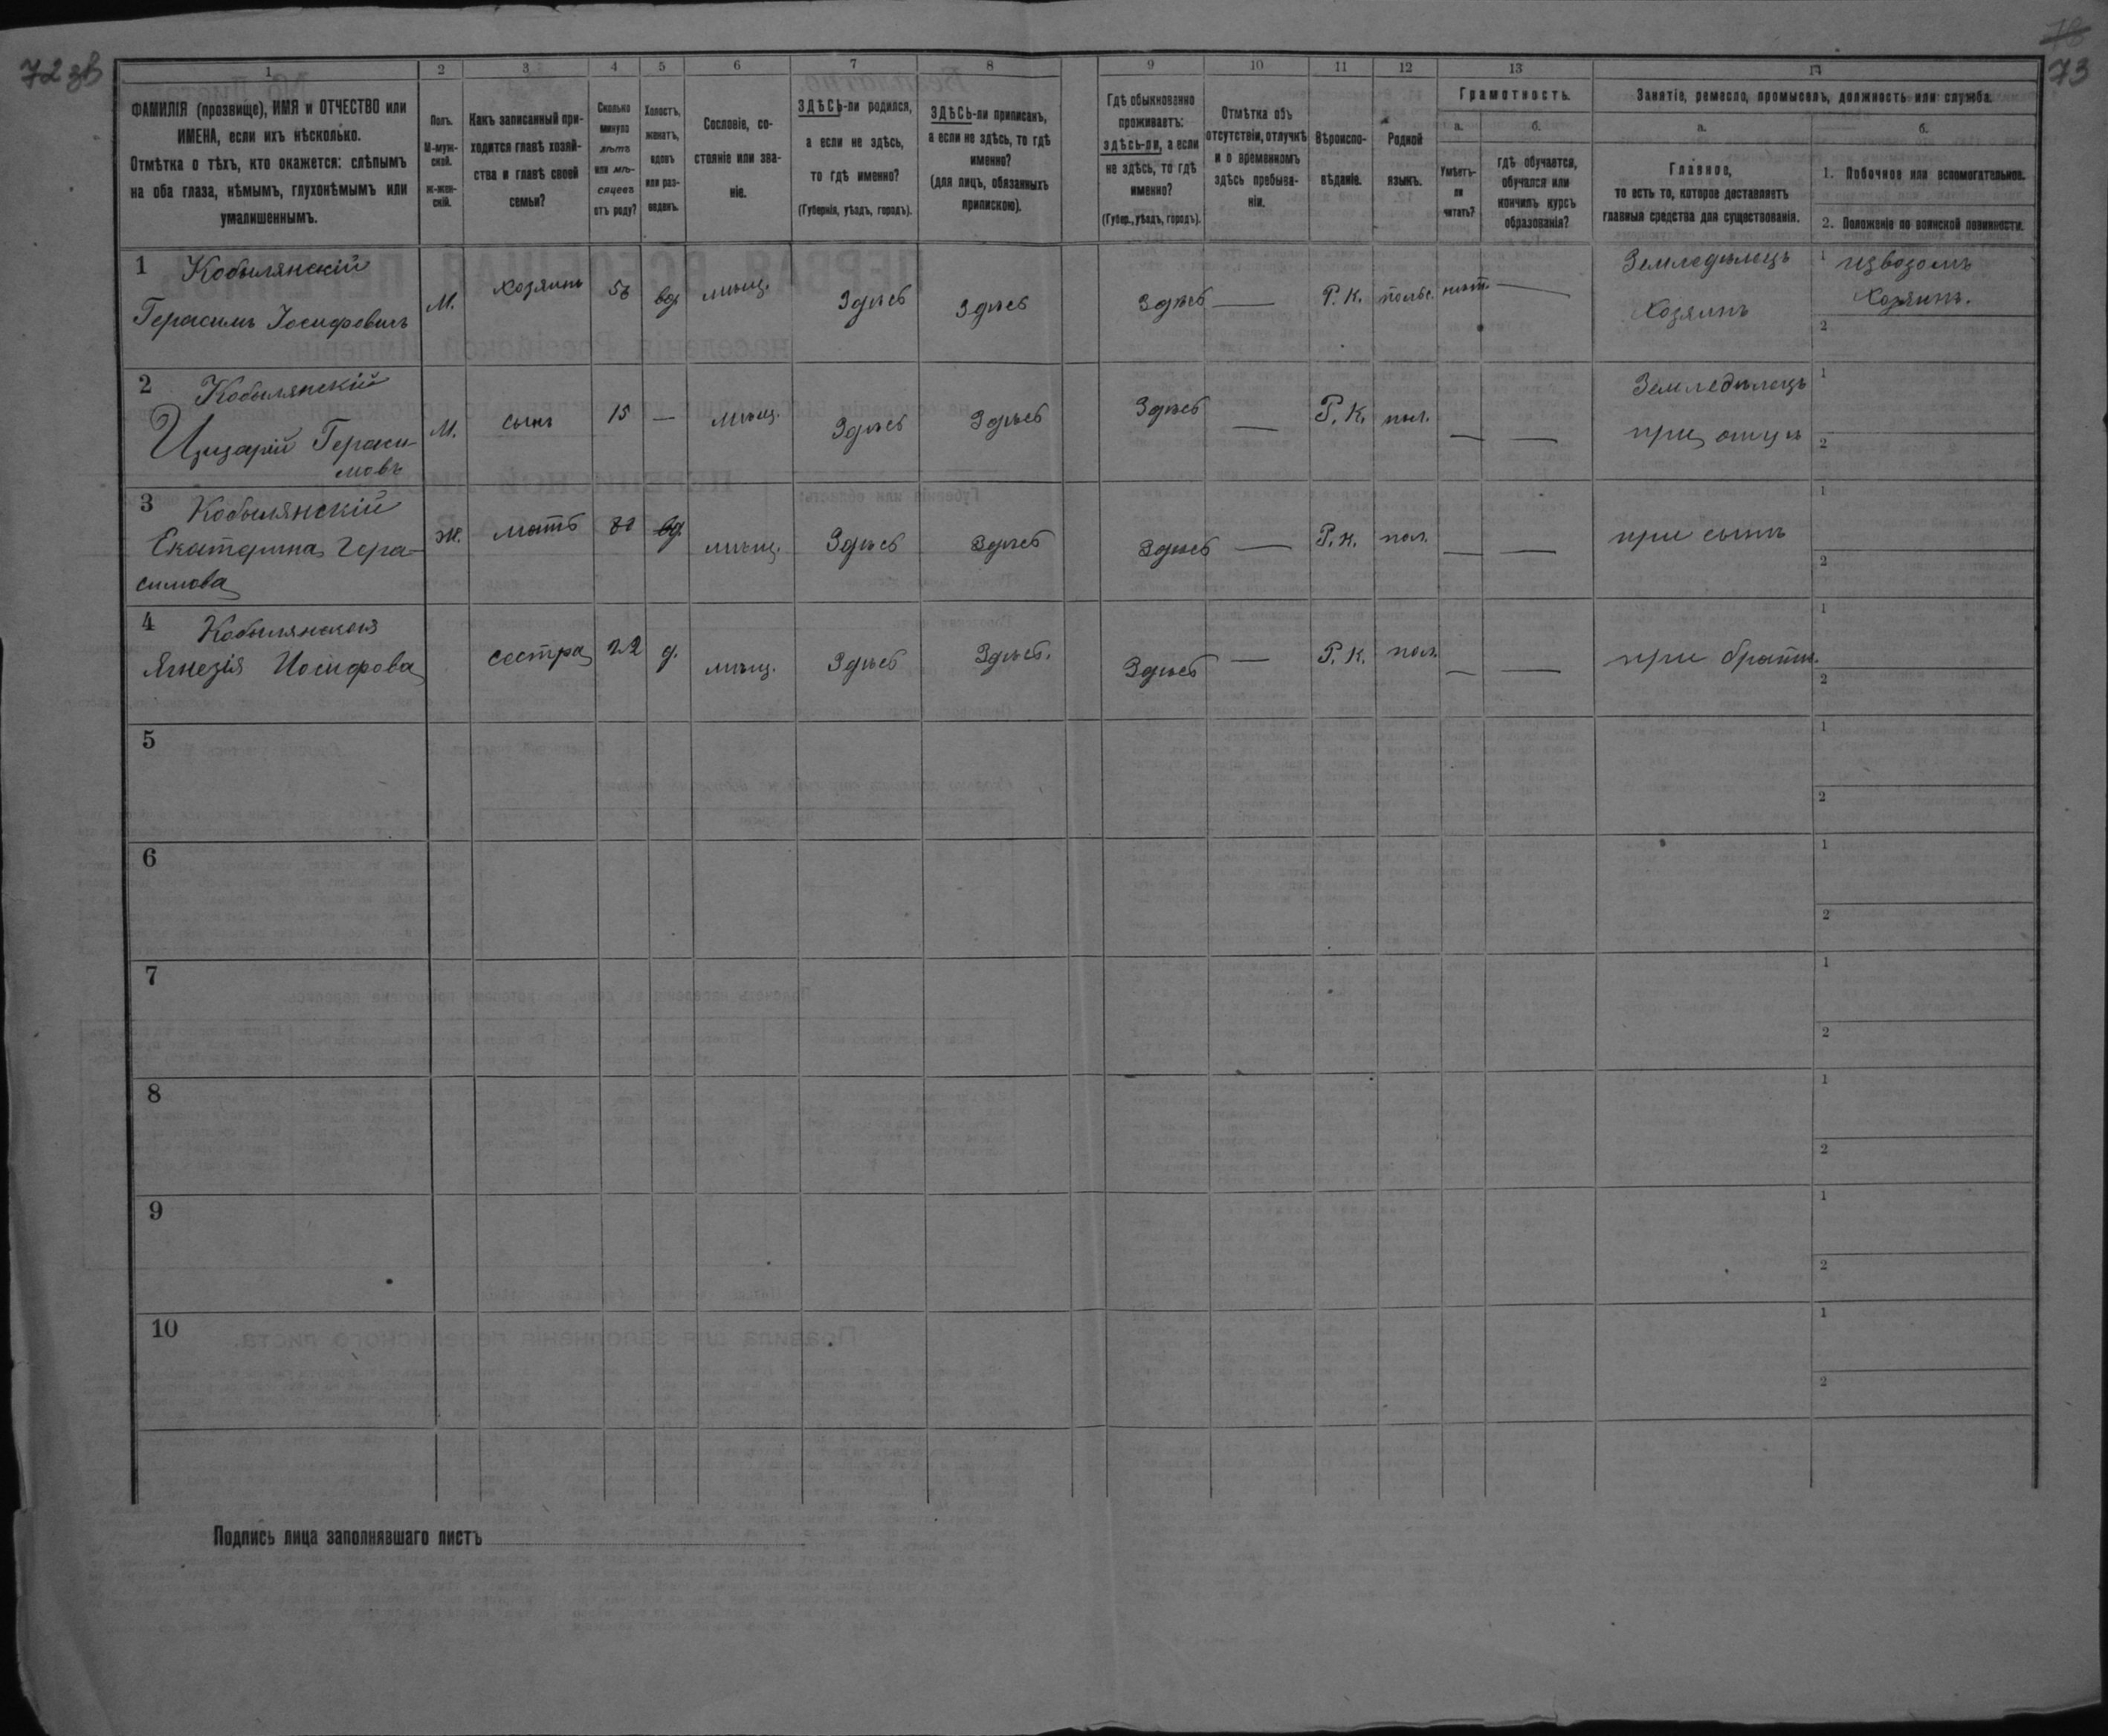 72 зв
73
1 2 3 4 5 6 7 8 9 10 11 12 13 14
ФАМИЛІЯ (прозвище), ИМЯ и ОТЧЕСТВО или
ИМЕНА, если ихъ нѣсколько.
Отмѣтка о тѣхъ, кто окажется: слѣпымъ
на оба глаза, нѣмымъ, глухонѣмымъ или
умалишеннымъ.
Полъ.
М-муж-
ской.
ж-жен-
скій.
Какъ записанный при-
ходится главѣ хозяй-
ства и главѣ своей
семьи?
Сколько
минуло
лѣтъ
или мѣ-
сяцевъ
отъ роду?
Холостъ,
женатъ,
вдовъ
или раз-
веденъ.
Сословіе, со-
стояніе или зва-
ніе.
ЗДѢСЬ-ли родился,
а если не здѣсь,
то гдѣ именно?
(Губернія, уѣздъ, городъ).
ЗДѢСЬ-ли приписанъ,
а если не здѣсь, то гдѣ
именно?
(для лицъ, обязанныхъ
припискою).
Гдѣ обыкновенно
проживаетъ:
здѣсь-ли, а если
не здѣсь, то гдѣ
именно?
(Губер., уѣздъ, городъ).
Отмѣтка объ
отсутствіи, отлучкѣ
и о временномъ
здѣсь пребыва-
ніи.
Вѣроиспо-
вѣданіе.
Родной
языкъ.
Грамотность.
а.
Умѣетъ-
ли
читать?
б.
гдѣ обучается,
обучался или
кончилъ курсъ
образованія?
Занятіе, ремесло, промыселъ, должность или служба.
а.
Главное,
то есть то, которое доставляетъ
главныя средства для существованія.
б.
1. Побочное или вспомогательное.
2. Положеніе по воинской повинности.
1 Кобылянскій
Герасимъ Іосифовичъ
М. хозяинъ вд мѣщ. Здѣсь Здѣсь Здѣсь — Р. К. польс. нѣт. —
Земледѣлецъ
Хозяинъ
1 извозомъ
Хозяинъ.
2
2 Кобылянскій
Цизарій Гераси-
мовъ
М. сынъ 15 — мѣщ. Здѣсь Здѣсь Здѣсь — Р. К. пол. — —
Земледѣлецъ
при отцѣ
1
2
3 Кобылянскій
Екатерина Гера-
симова
Ж. мать 80 вд. мѣщ. Здѣсь Здѣсь Здѣсь — Р. К. пол. — — при сынѣ
1
2
4 Кобылянская
Агнезія Иосифова
сестра 22 д. мѣщ. Здѣсь Здѣсь. Здѣсь — Р. К. пол. — — при братѣ.
1
2
5
1
2
6
1
2
7
1
2
8
1
2
9
1
2
10
1
2
Подпись лица заполнявшаго листъ